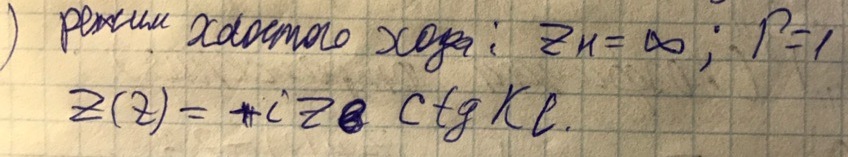 ) режим холостого хода: Zн = ∞; Г=1
Z(z) = +i Zв ctg Kl.